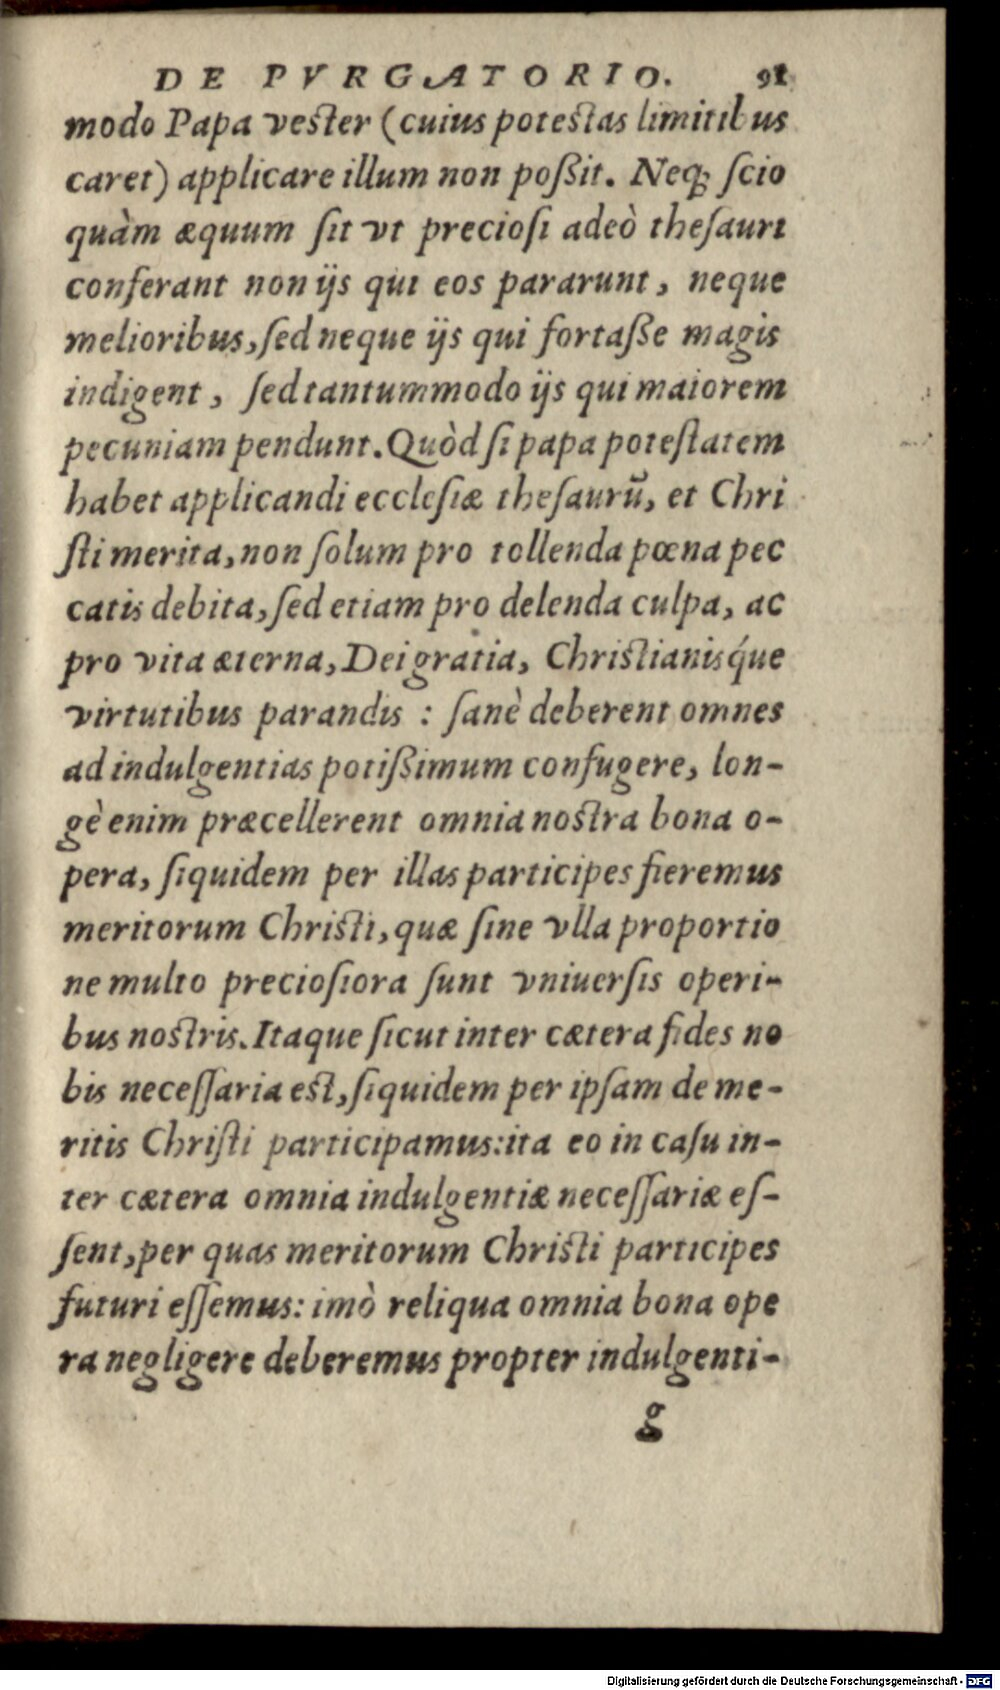 DE PVRGATORIO. 91
modo Papa vester (cuius potestas limitibus
caret) applicare illum non poßit. Neq; ſcio
quàm æquum ſit vt precioſi adeò theſauri
conferant non ijs qui eos pararunt, neque
melioribus, ſed neque ijs qui fortaße magis
indigent, ſed tantummodo ijs qui maiorem
pecuniam pendunt. Quòd ſi papa poteſtatem
habet applicandi eccleſiæ theſaurū, et Chri
ſti merita, non ſolum pro tollenda pœna pec
catis debita, ſed etiam pro delenda culpa, ac
pro vita æterna, Dei gratia, Christianisq́ue
virtutibus parandis : ſanè deberent omnes
ad indulgentias potißimum confugere, lon-
gè enim præcellerent omnia nostra bona o-
pera, ſiquidem per illas participes fieremus
meritorum Christi, quæ ſine vlla proportio
ne multo precioſiora ſunt vniuerſis operi-
bus nostris. Itaque ſicut inter cætera fides no
bis neceſſaria est, ſiquidem per ipſam de me-
ritis Chriſti participamus: ita eo in caſu in-
ter cætera omnia indulgentiæ neceſſariæ eſ-
ſent, per quas meritorum Christi participes
futuri eſſemus: imò reliqua omnia bona ope
ra negligere deberemus propter indulgenti-
g
Digitalisierung gefördert durch die Deutsche Forschungsgemeinschaft - DFG